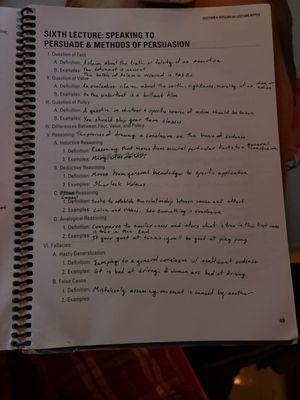 SECTION 6 OUTLINE OF LECTURE NOTES
SIXTH LECTURE: SPEAKING TO
PERSUADE & METHODS OF PERSUASION
I. Question of Fact
A. Definition: A claim about the truth or falsity of an assertion
B. Examples: The defendant is innocent
The battle of Salamis occurred in 480 B.C.
II. Question of Value
A. Definition: An evaluative claim about the worth, rightness, morality of an idea or action
B. Examples: On the waterfront is a brilliant film
III. Question of Policy
A. Definition: A question in whether a specific course of action should be taken
B. Examples: You should skip your classes
IV. Differences Between Fact, Value, and Policy
V. Reasoning: The process of drawing a conclusion on the basis of evidence
A. Inductive Reasoning
1. Definition: Reasoning that moves from several particular facts to a general conclusion
2. Examples:
B. Deductive Reasoning
1. Definition: Moves from general knowledge to specific application
2. Examples: Sherlock Holmes
C. Causal
1. Definition: Seeks to establish the relationship between cause and effect
2. Examples: see something is conclusion
D. Analogical Reasoning
1. Definition: Compares to similar cases and infers what is true in the first case
is true in the 2nd
2. Examples: If your good at tennis, you'll be good at ping pong
VI. Fallacies:
A. Hasty Generalization
1. Definition: Jumping to a general conclusion w/ insufficient evidence
2. Examples: is bad at driving, all women are bad at driving
B. False Cause
1. Definition: Mistakenly assuming one event is caused by another
2. Examples:
49